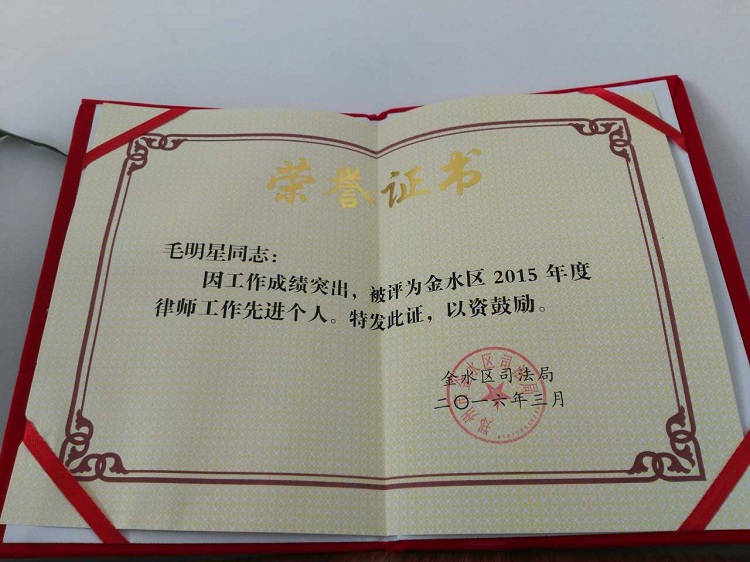 荣誉证书
毛明星同志：
因工作成绩突出，被评为金水区 2015 年度
律师工作先进个人。特发此证，以资鼓励。
金水区司法局
二〇一六年三月